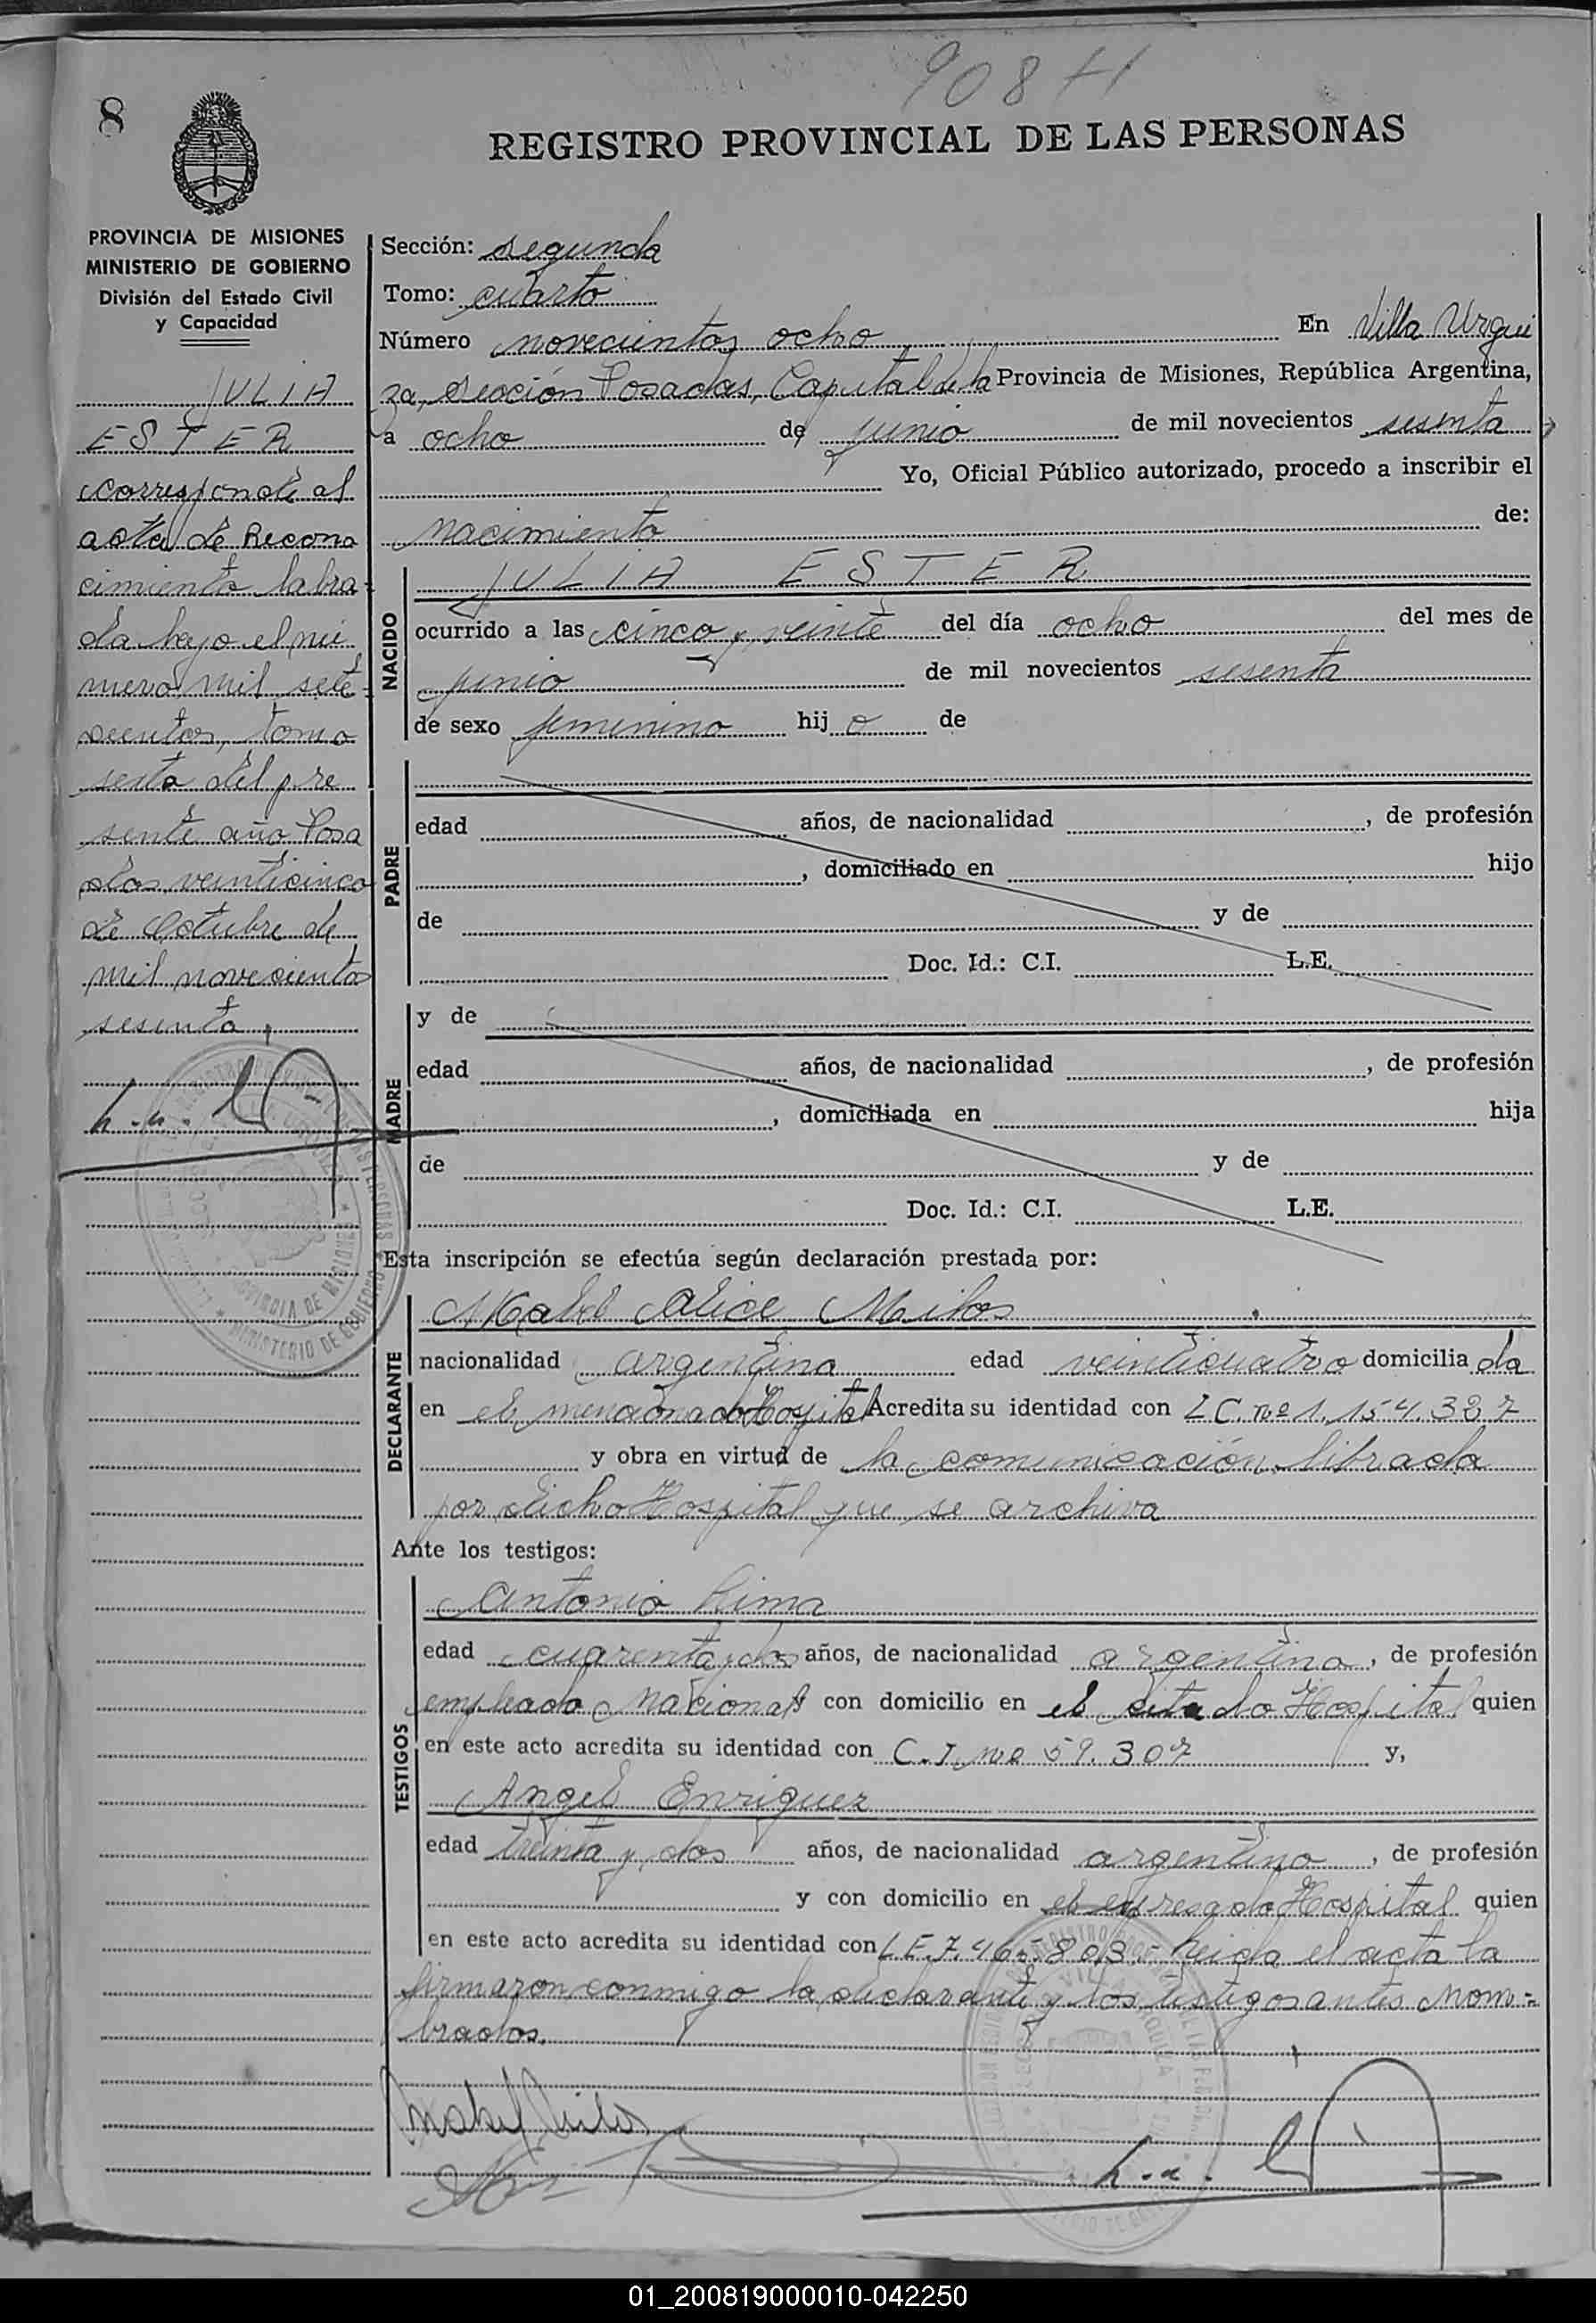 908 H
8
REGISTRO PROVINCIAL DE LAS PERSONAS
PROVINCIA DE MISIONES
MINISTERIO DE GOBIERNO
División del Estado Civil
y Capacidad
JULIA
ESTER
corresponde al
acta de Recono
cimiento labra-
da bajo el nú
mero mil sete-
cientos, tomo
sexto del pre
sente año Posa
das veinticinco
de Octubre de
mil novecientos
sesenta.
Sección: segunda
Tomo: cuarto
Número novecientos ocho En Villa Urqui
za, sección Posadas, Capital de la Provincia de Misiones, República Argentina,
a ocho de junio de mil novecientos sesenta
Yo, Oficial Público autorizado, procedo a inscribir el
nacimiento de:
NACIDO
JULIA ESTER
ocurrido a las cinco y veinte del día ocho del mes de
junio de mil novecientos sesenta
de sexo femenino hij o de
PADRE
edad años, de nacionalidad , de profesión
, domiciliado en hijo
de y de
Doc. Id.: C.I. L.E.
MADRE
y de
edad años, de nacionalidad , de profesión
, domiciliada en hija
de y de
Doc. Id.: C.I. L.E.
Esta inscripción se efectúa según declaración prestada por:
DECLARANTE
Mabel Alice Milos
nacionalidad argentina edad veinticuatro domicilia da
en el mencionado Hospital Acredita su identidad con L.C. nº 1.154.387
y obra en virtud de la comunicación librada
por dicho Hospital que se archiva
Ante los testigos:
TESTIGOS
Antonio Lima
edad cuarenta y dos años, de nacionalidad argentina, de profesión
empleado Nacional y con domicilio en el citado Hospital quien
en este acto acredita su identidad con C.I. nº 59.307 y,
Angel Enriquez
edad treinta y dos años, de nacionalidad argentino, de profesión
y con domicilio en el expresado Hospital quien
en este acto acredita su identidad con L.E. 7.465.803.- Leida el acta la
firmaron conmigo la declarante y los testigos antes nom-
brados.
Mabel Milos
01_200819000010-042250